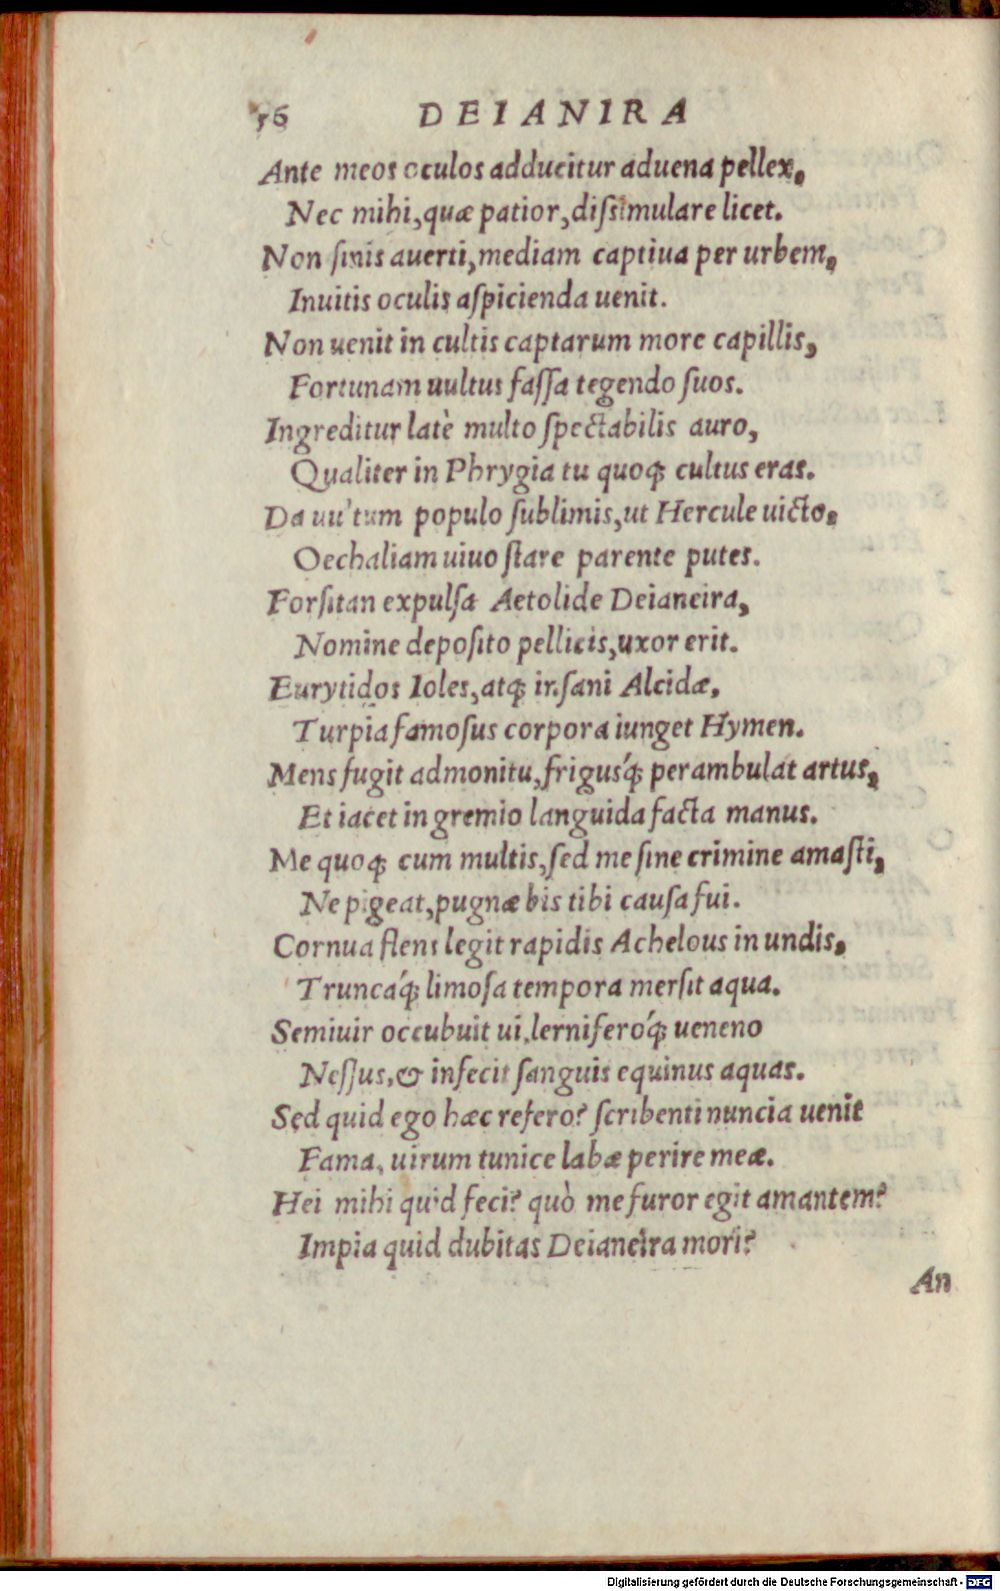 56 DEIANIRA
Ante meos oculos adducitur aduena pellex,
Nec mihi, quæ patior, diſsimulare licet.
Non ſinis auerti, mediam captiua per urbem,
Inuitis oculis aſpicienda uenit.
Non uenit in cultis captarum more capillis,
Fortunam uultus faſſa tegendo ſuos.
Ingreditur latè multo ſpectabilis auro,
Qualiter in Phrygia tu quoq; cultus eras.
Da uultum populo ſublimis, ut Hercule uicto,
Oechaliam uiuo ſtare parente putes.
Forſitan expulſa Aetolide Deianeira,
Nomine depoſito pellicis, uxor erit.
Eurytidos Ioles, atq; inſani Alcidæ,
Turpia famoſus corpora iunget Hymen.
Mens fugit admonitu, frigusq́; perambulat artus,
Et iacet in gremio languida facta manus.
Me quoq; cum multis, ſed me ſine crimine amaſti,
Ne pigeat, pugnæ bis tibi cauſa fui.
Cornua flens legit rapidis Achelous in undis,
Truncaq́; limoſa tempora merſit aqua.
Semiuir occubuit ui, lerniferoq́; ueneno
Neſſus, & infecit ſanguis equinus aquas.
Sed quid ego hæc refero? ſcribenti nuncia uenit
Fama, uirum tunice labæ perire meæ.
Hei mihi quid feci? quò me furor egit amantem?
Impia quid dubitas Deianeira mori?
An
Digitalisierung gefördert durch die Deutsche Forschungsgemeinschaft - DFG